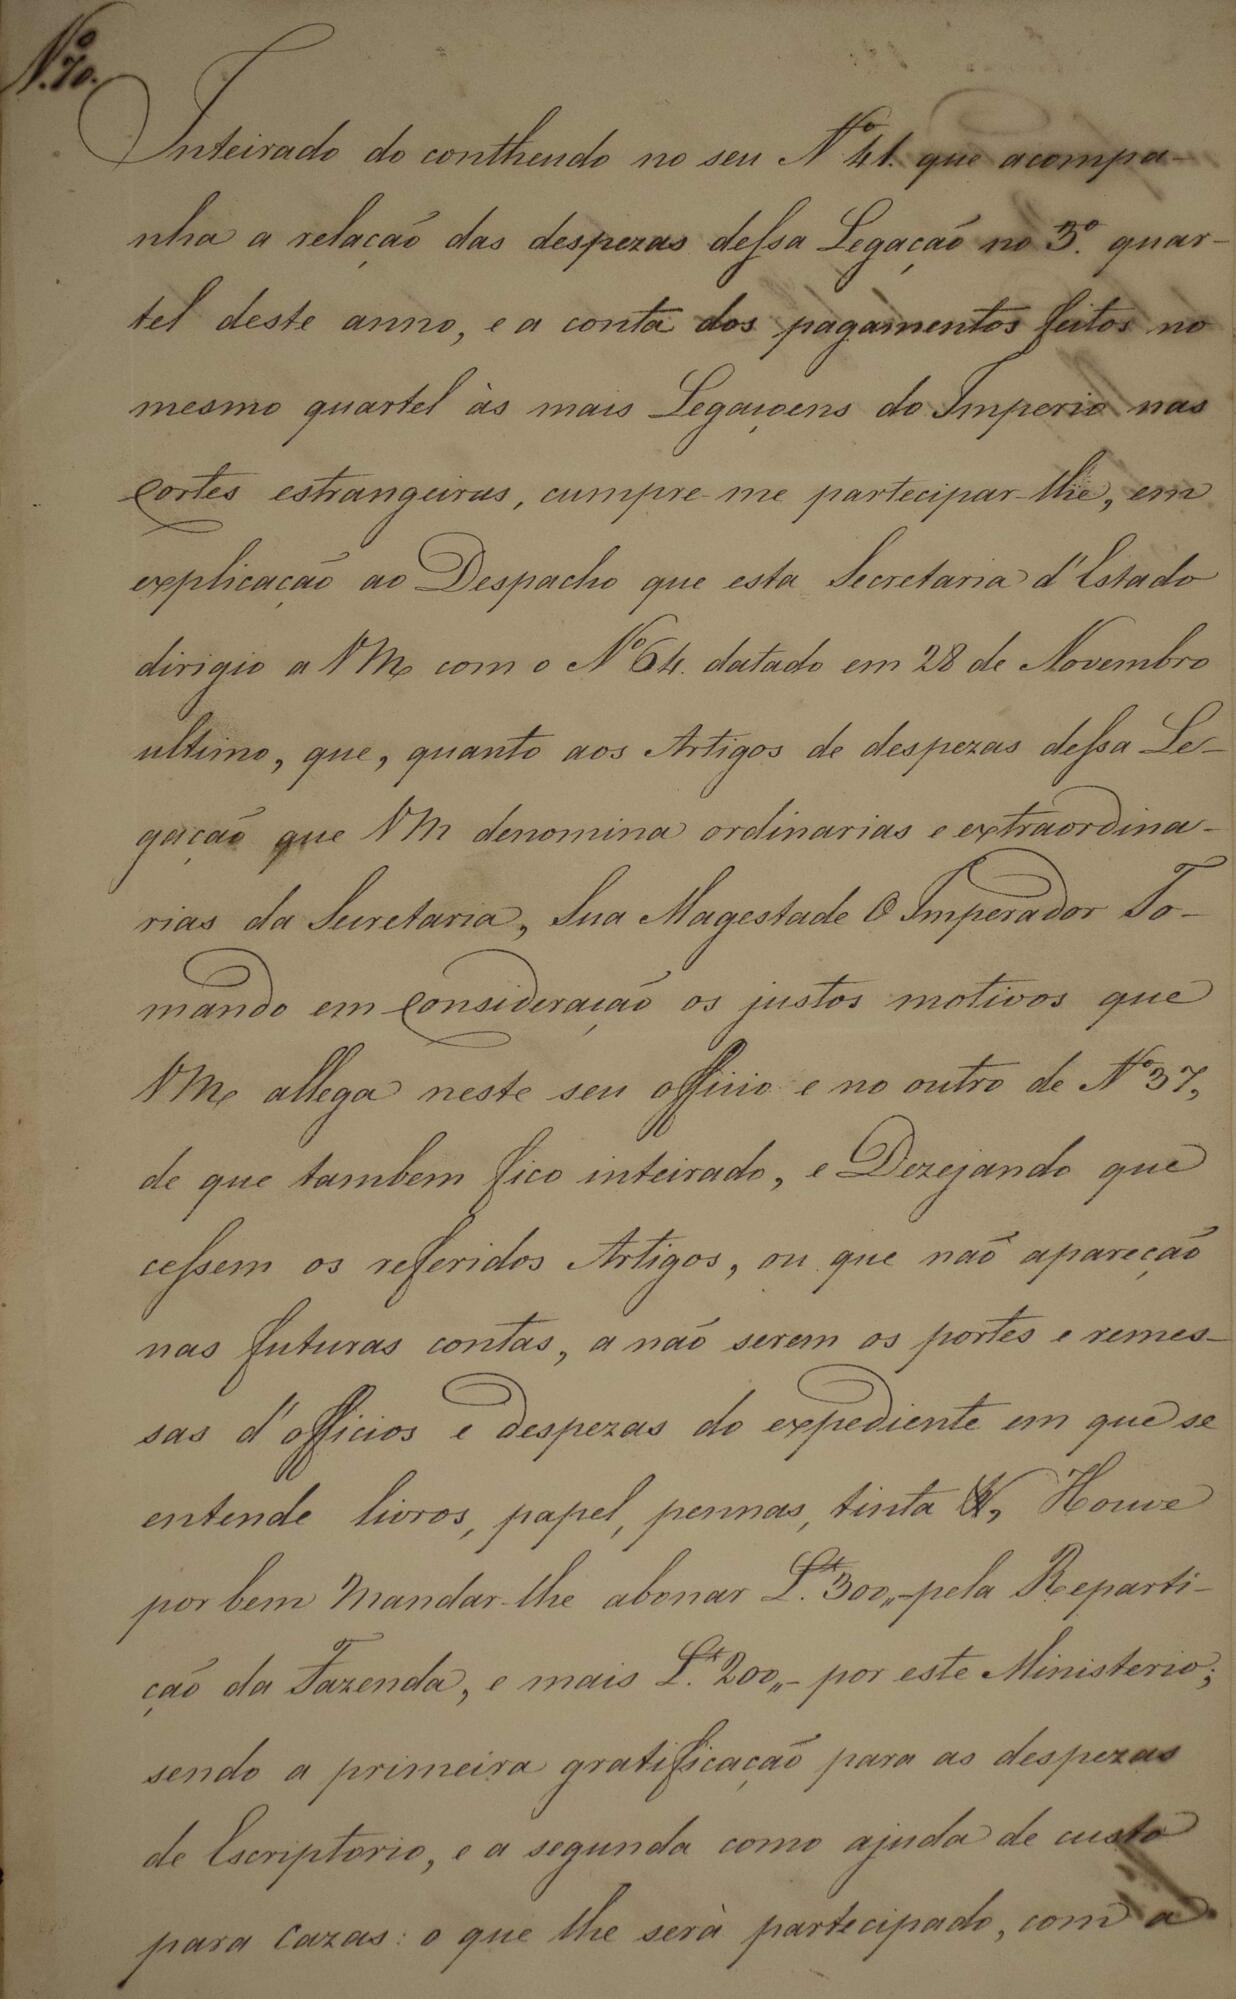 Nº 70.
Inteirado do conthendo no seu Nº 41. que acompa-
nha a relação das despezas dessa Legação no 3º. quar-
tel deste anno, e a conta dos pagamentos feitos no
mesmo quartel às mais Legaçoens do Imperio nas
Cortes estrangeiras, cumpre-me partecipar-lhe, em
explicação ao Despacho que esta Secretaria d'Estado
dirigio a VMe com o Nº 64. datado em 28 de Novembro
ultimo, que, quanto aos Artigos de despezas dessa Le-
gação que VM denomina ordinarias e extraordina-
rias da Secretaria, Sua Magestade O Imperador To-
mando em Consideração os justos motivos que
VMe allega neste seu officio e no outro de Nº 37,
de que tambem fico inteirado, e Dezejando que
cessem os referidos Artigos, ou que não apareção
nas futuras contas, a não serem os portes e remes-
sas d'officios e despezas do expediente em que se
entende livros, papel, pennas, tinta &, Houve
por bem Mandar-lhe abonar L.st 300,,- pela Reparti-
ção da Fazenda, e mais L.st 200,,- por este Ministerio;
sendo a primeira gratificação para as despezas
de Escriptorio, e a segunda como ajuda de custo
para cazas: o que lhe serà partecipado, com a